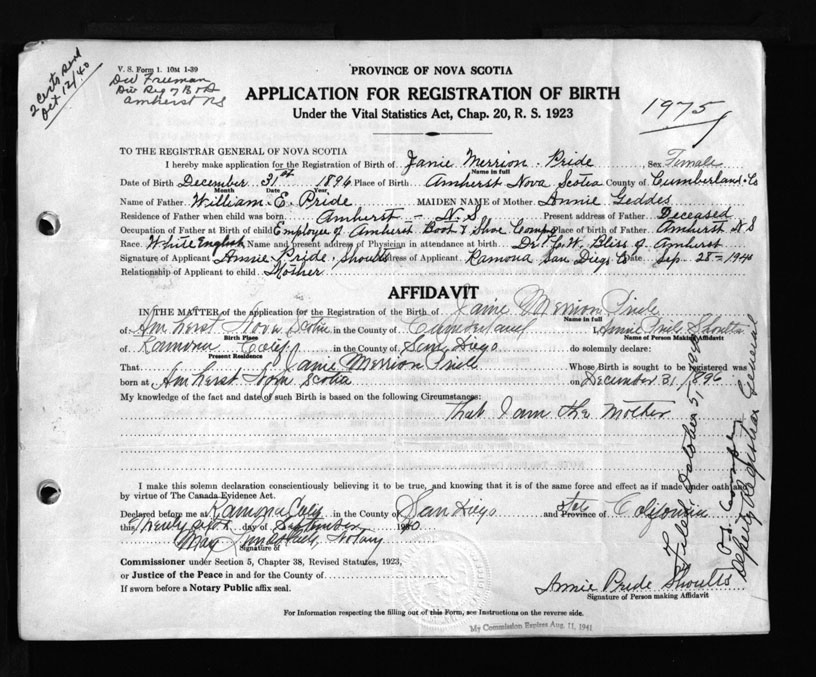 2 certs send
Oct 12/40
V. S. Form 1. 10M 1-39
Div Reg of B & D
Amherst NS
PROVINCE OF NOVA SCOTIA
APPLICATION FOR REGISTRATION OF BIRTH
Under the Vital Statistics Act, Chap. 20, R. S. 1923
1975
TO THE REGISTRAR GENERAL OF NOVA SCOTIA
I hereby make application for the Registration of Birth of Janie Merrion Pride, Sex Female
Name in full
Date of Birth December 31st 1896 Place of Birth Amherst Nova Scotia County of Cumberland Co
Date Year
Name of Father William E. Pride MAIDEN NAME of Mother Annie Geddes
Residence of Father when child was born Amherst - N.S Present address of Father Deceased
Occupation of Father at Birth of child Employee of Amherst Boot & Shoe Comp Place of birth of Father Amherst N S
Race White English Name and present address of Physician in attendance at birth Dr. C. W. Bliss of Amherst
Signature of Applicant Annie Pride Shoults Address of Applicant Ramona San Diego Co Date Sep. 28th 1940
Relationship of Applicant to child Mother
AFFIDAVIT
IN THE MATTER of the application for the Registration of the Birth of Janie Merrion Pride
Name in full
of Amherst Nova Scotia in the County of Cumberland I, Annie Pride Shoults
Birth Place Name of Person making Affidavit
of Ramona Calif in the County of San Diego do solemnly declare:
Present Residence
That Janie Merrion Pride Whose Birth is sought to be registered was
born at Amherst Nova Scotia on December 31/1896
My knowledge of the fact and date of such Birth is based on the following Circumstances:
That I am the Mother
I make this solemn declaration conscientiously believing it to be true, and knowing that it is of the same force and effect as if made under oath and
by virtue of The Canada Evidence Act.
Declared before me at Ramona Calif in the County of San Diego and State Province of California
this day of September 1940
Notary
Signature of
Commissioner under Section 5, Chapter 38, Revised Statutes, 1923,
or Justice of the Peace in and for the County of
If sworn before a Notary Public affix seal.
Annie Pride Shoults
Signature of Person making Affidavit
For Information respecting the filling out of this Form, see Instructions on the reverse side.
My Commission Expires Aug. 11, 1941
Filed October 5, 1940
Deputy Registrar General